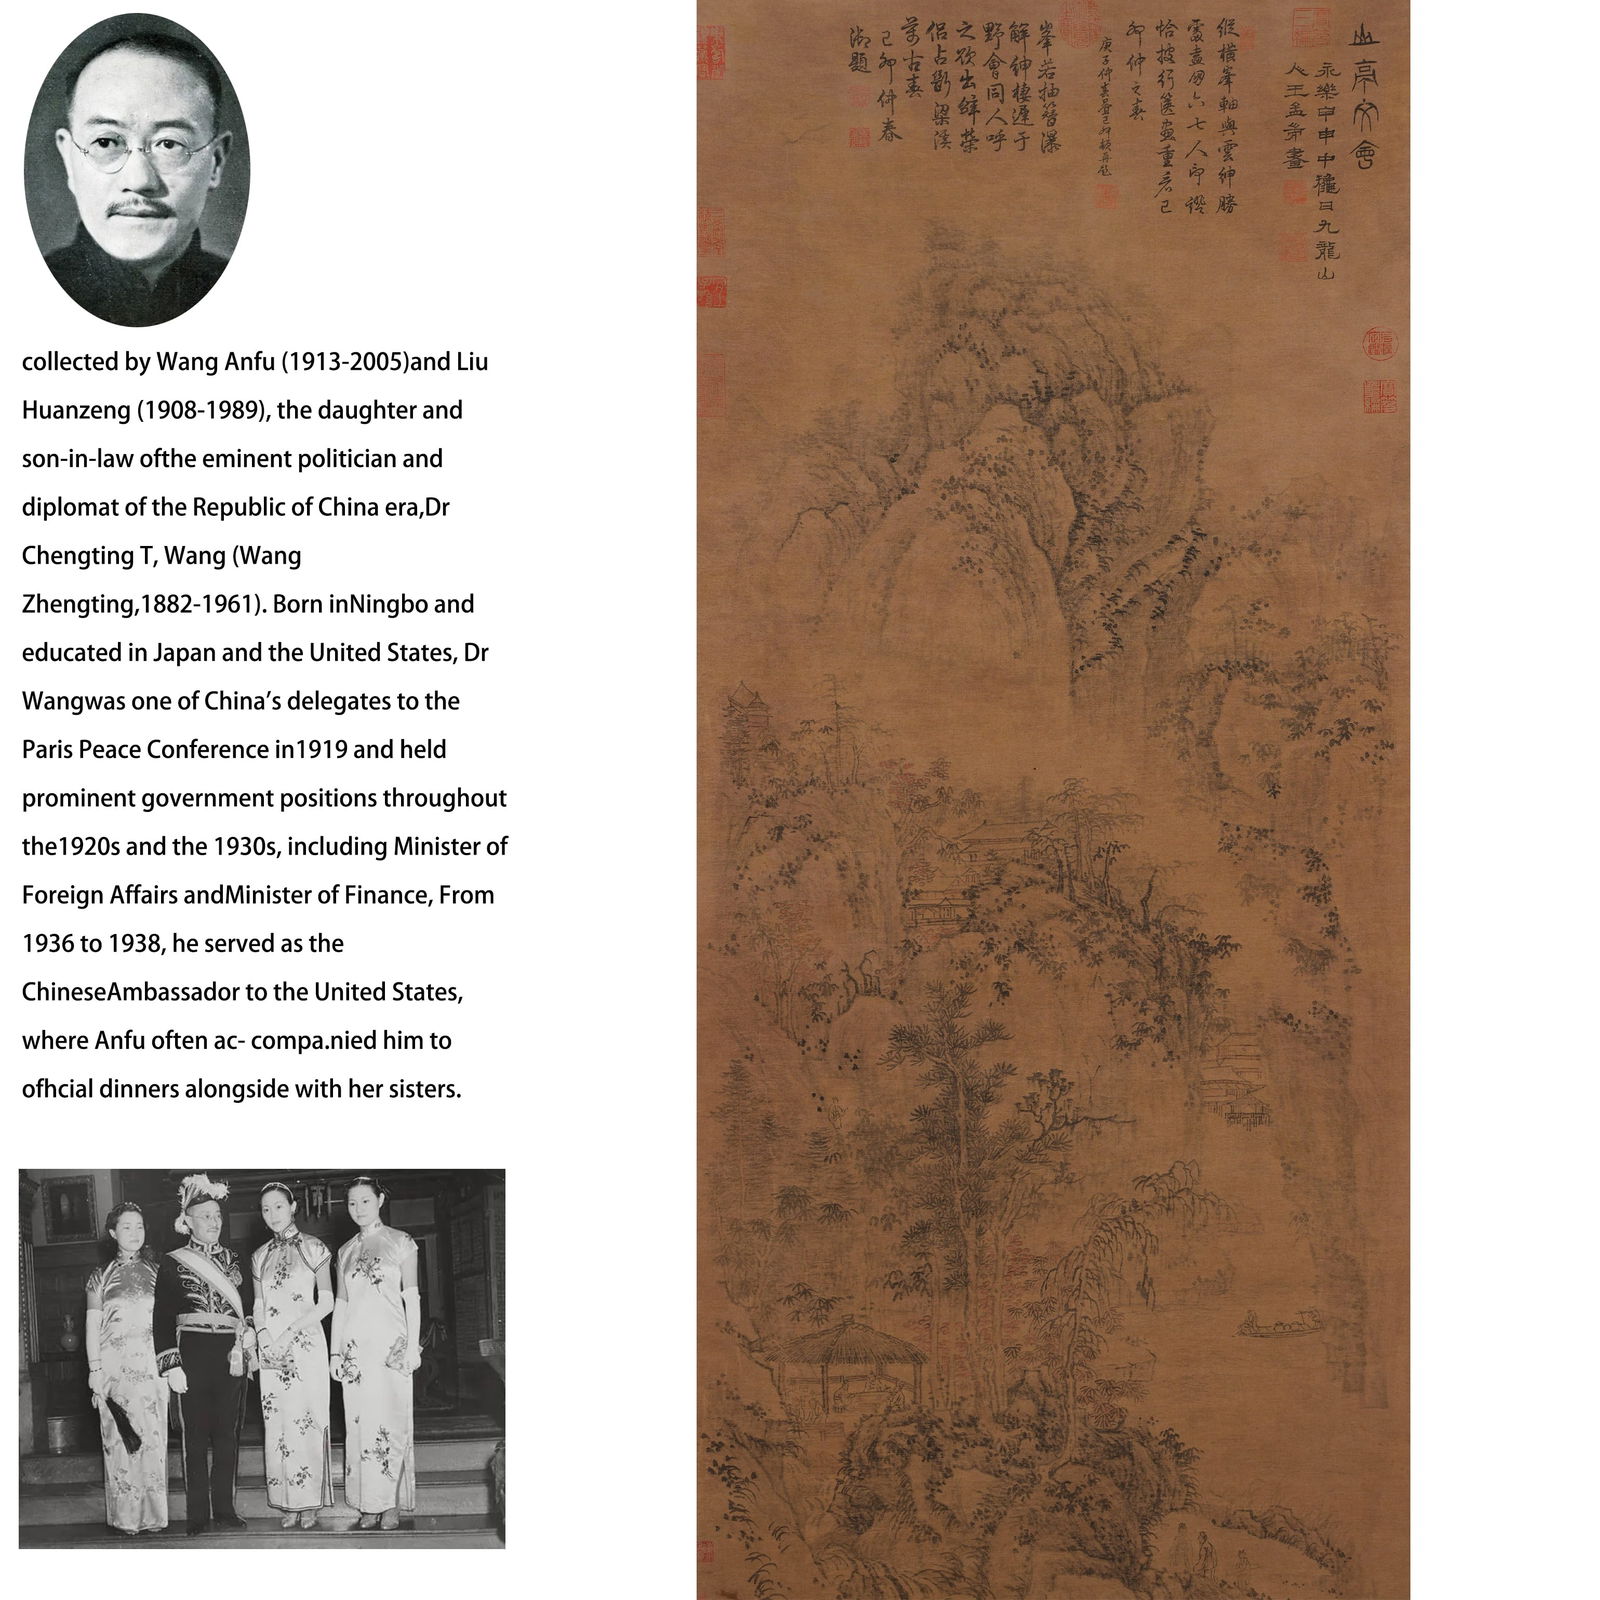 collected by Wang Anfu (1913-2005)and Liu
Huanzeng (1908-1989), the daughter and
son-in-law ofthe eminent politician and
diplomat of the Republic of China era,Dr
Chengting T, Wang (Wang
Zhengting,1882-1961). Born inNingbo and
educated in Japan and the United States, Dr
Wangwas one of China’s delegates to the
Paris Peace Conference in1919 and held
prominent government positions throughout
the1920s and the 1930s, including Minister of
Foreign Affairs andMinister of Finance, From
1936 to 1938, he served as the
ChineseAmbassador to the United States,
where Anfu often ac- compa.nied him to
ofhcial dinners alongside with her sisters.
山亭文會
永樂甲申中穐日九龍山
人王孟端畫
縱橫峯軸與雲紳勝
處盍六七人印證
恰披行篋重看己
卯仲之春
庚子仲春疊己卯韻再題
峯若抽簪瀑
解紳棲遲于
野會同人呼
之欲出辭榮
侶占斷梁溪
萬古春
己卯仲春
御題